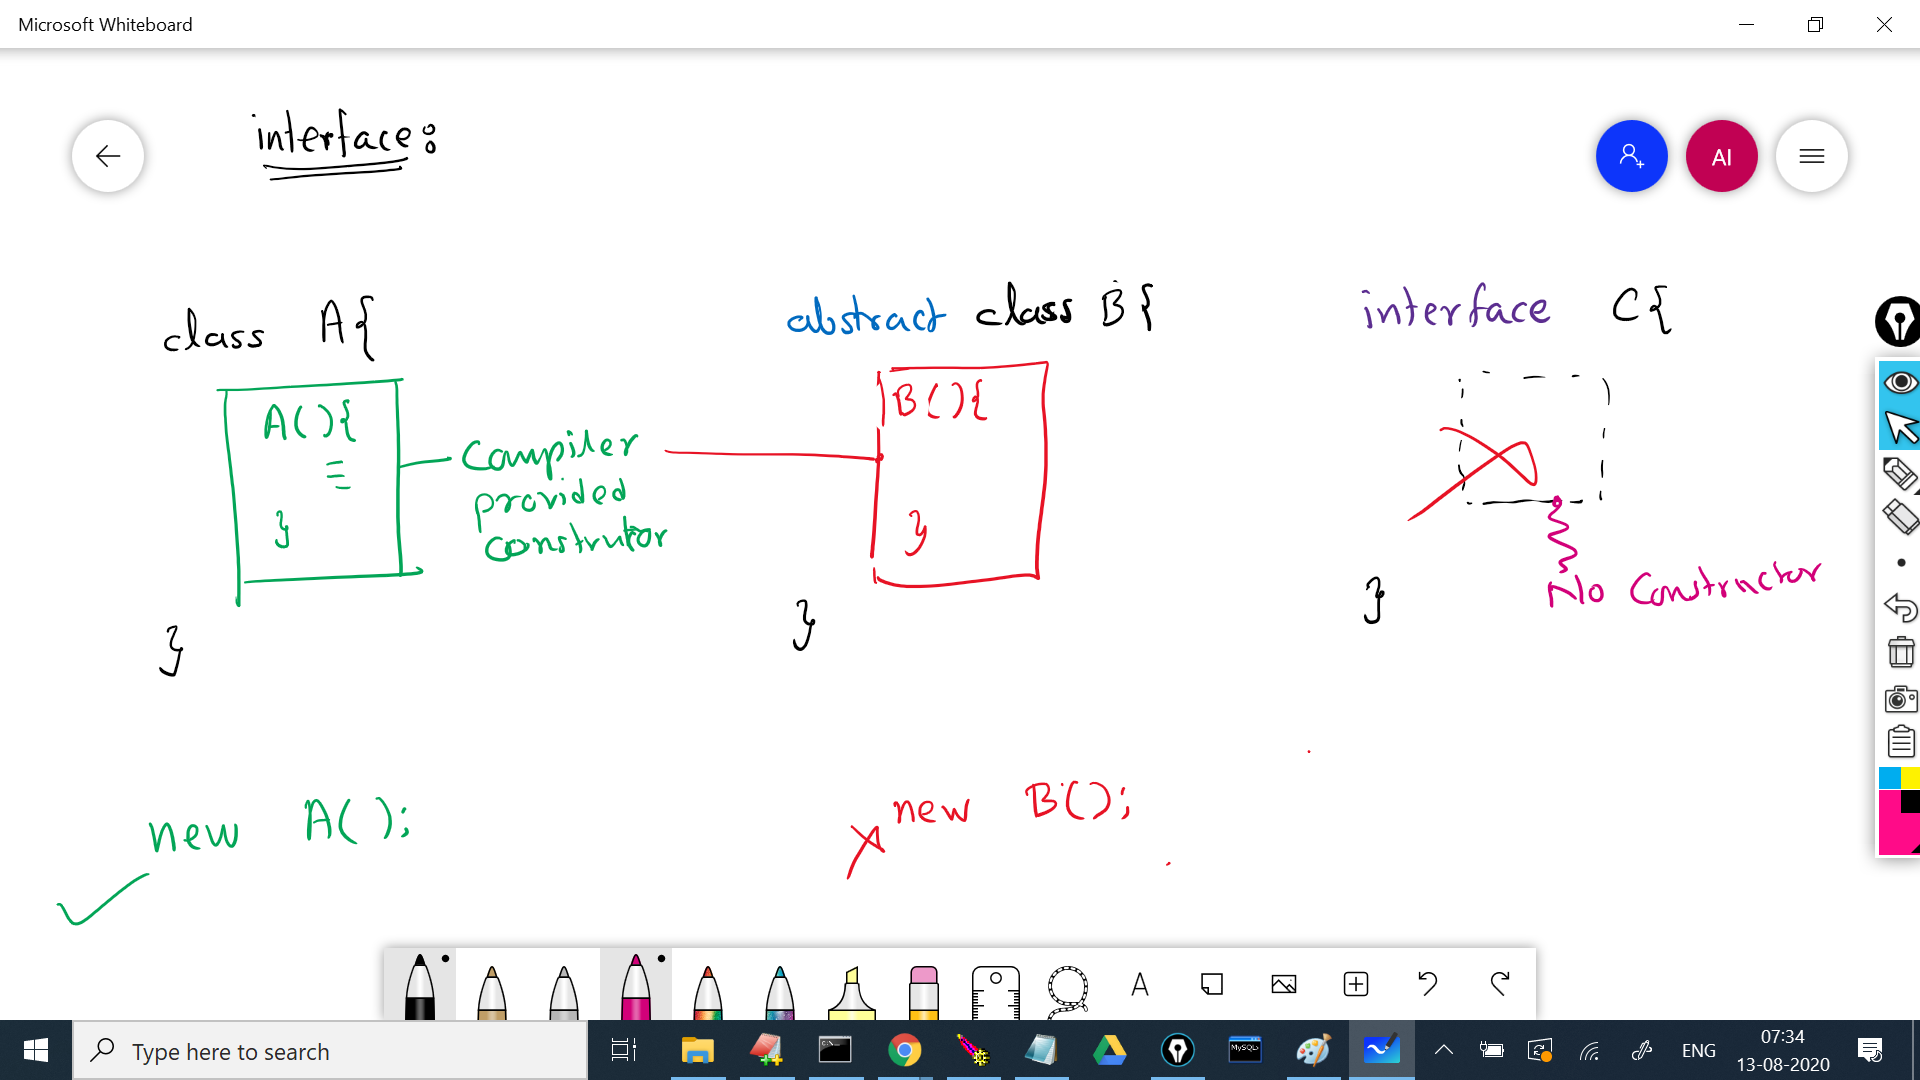 Microsoft Whiteboard
interface:
AI
class A{
A(){
}
}
Compiler
provided
construtor
abstract class B{
B(){
}
}
interface C{
}
No Constructor
new A();
new B();
A
Type here to search
MySQL
ENG
07:34
13-08-2020